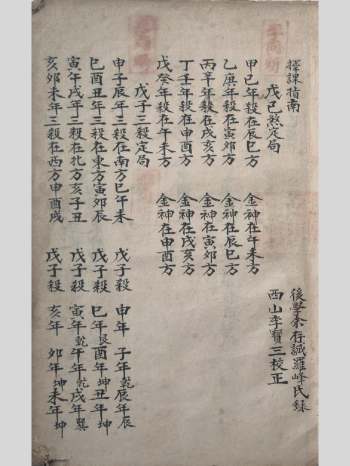 擇課指南
後學李存誠羅峰氏錄
西山李寶三校正
戊己煞定局
甲己年殺在辰巳方 金神在午未方
乙庚年殺在寅卯方 金神在辰巳方
丙辛年殺在戌亥方 金神在寅卯方
丁壬年殺在申酉方 金神在戌亥方
戊癸年殺在午未方 金神在申酉方
戊子三殺定局
申子辰年三殺在南方巳午未 戊子殺 申年 子年乾辰年辰
巳酉丑年三殺在東方寅卯辰 戊子殺 巳年艮酉年坤丑年坤
寅午戌年三殺在北方亥子丑 戊子殺 寅年乾午年乾戌年巽
亥卯未年三殺在西方申酉戌 戊子殺 亥年 卯年坤未年坤